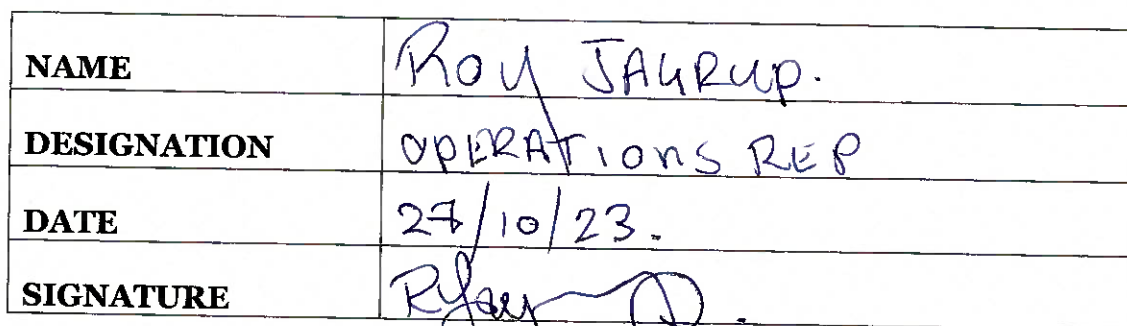 NAME Roy JAGRUP.
DESIGNATION OPERATIONS REP
DATE 27/10/23.
SIGNATURE